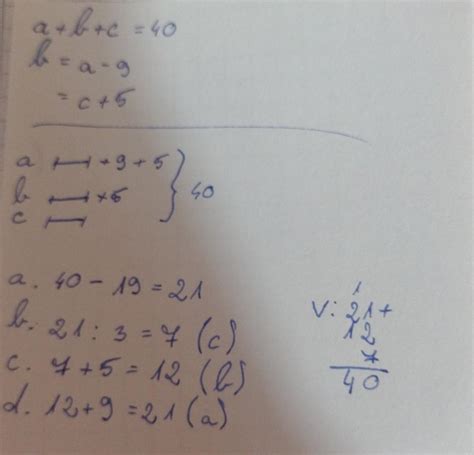 a + b + c = 40
b = a - 9
= c + 5
a ⊢⊣ + 9 + 5
b ⊢⊣ + 5
c ⊢⊣
} 40
a. 40 - 19 = 21
b. 21 : 3 = 7 (c)
c. 7 + 5 = 12 (b)
d. 12 + 9 = 21 (a)
1
V: 21 +
12
7
40